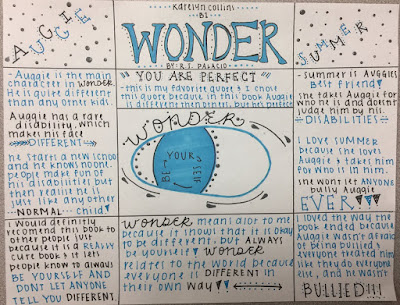 Katelyn Collins
B1
WONDER
BY: R.J. PALACIO
AUGGIE
AUGGIE
SUMMER
-Auggie is the main
character in WONDER
He is quite different
than any other kids.
Auggie has a rare
disability, which
makes his face
DIFFERENT
he starts a new school
and he knows noone.
people make fun of
his disabilities but
then realize he is
just like any other
NORMAL child
"YOU ARE PERFECT"
-this is my favorite quote & I chose
this quote because in this book Auggie
is different then others, but he's perfect
WONDER
BE YOUR
SELF
-summer is AUGGIES
Best friend
she takes Auggie for
who he is and doesnt
judge him by his
DISABILITIES
I love SUMMER
because she loves
Auggie & takes him
for who is in him.
she wont let ANYONE
bully Auggie
EVER
I would definitly
recomend this book to
other people just
because it is a REALLY
cute book & it lets
people know to always
BE YOURSELF AND
DONT LET ANYONE
TELL YOU DIFFERENT.
WONDER means alot to me
because it shows that it is okay
to be different, but ALWAYS
be yourself WONDER
relates to the world because
everyone is DIFFERENT in
their own way
I loved the way the
book ended because
Auggie wasn't afraid
of being bullied,
everyone treated him
like they do everyone
else, and he wasn't
BULLIED!!!